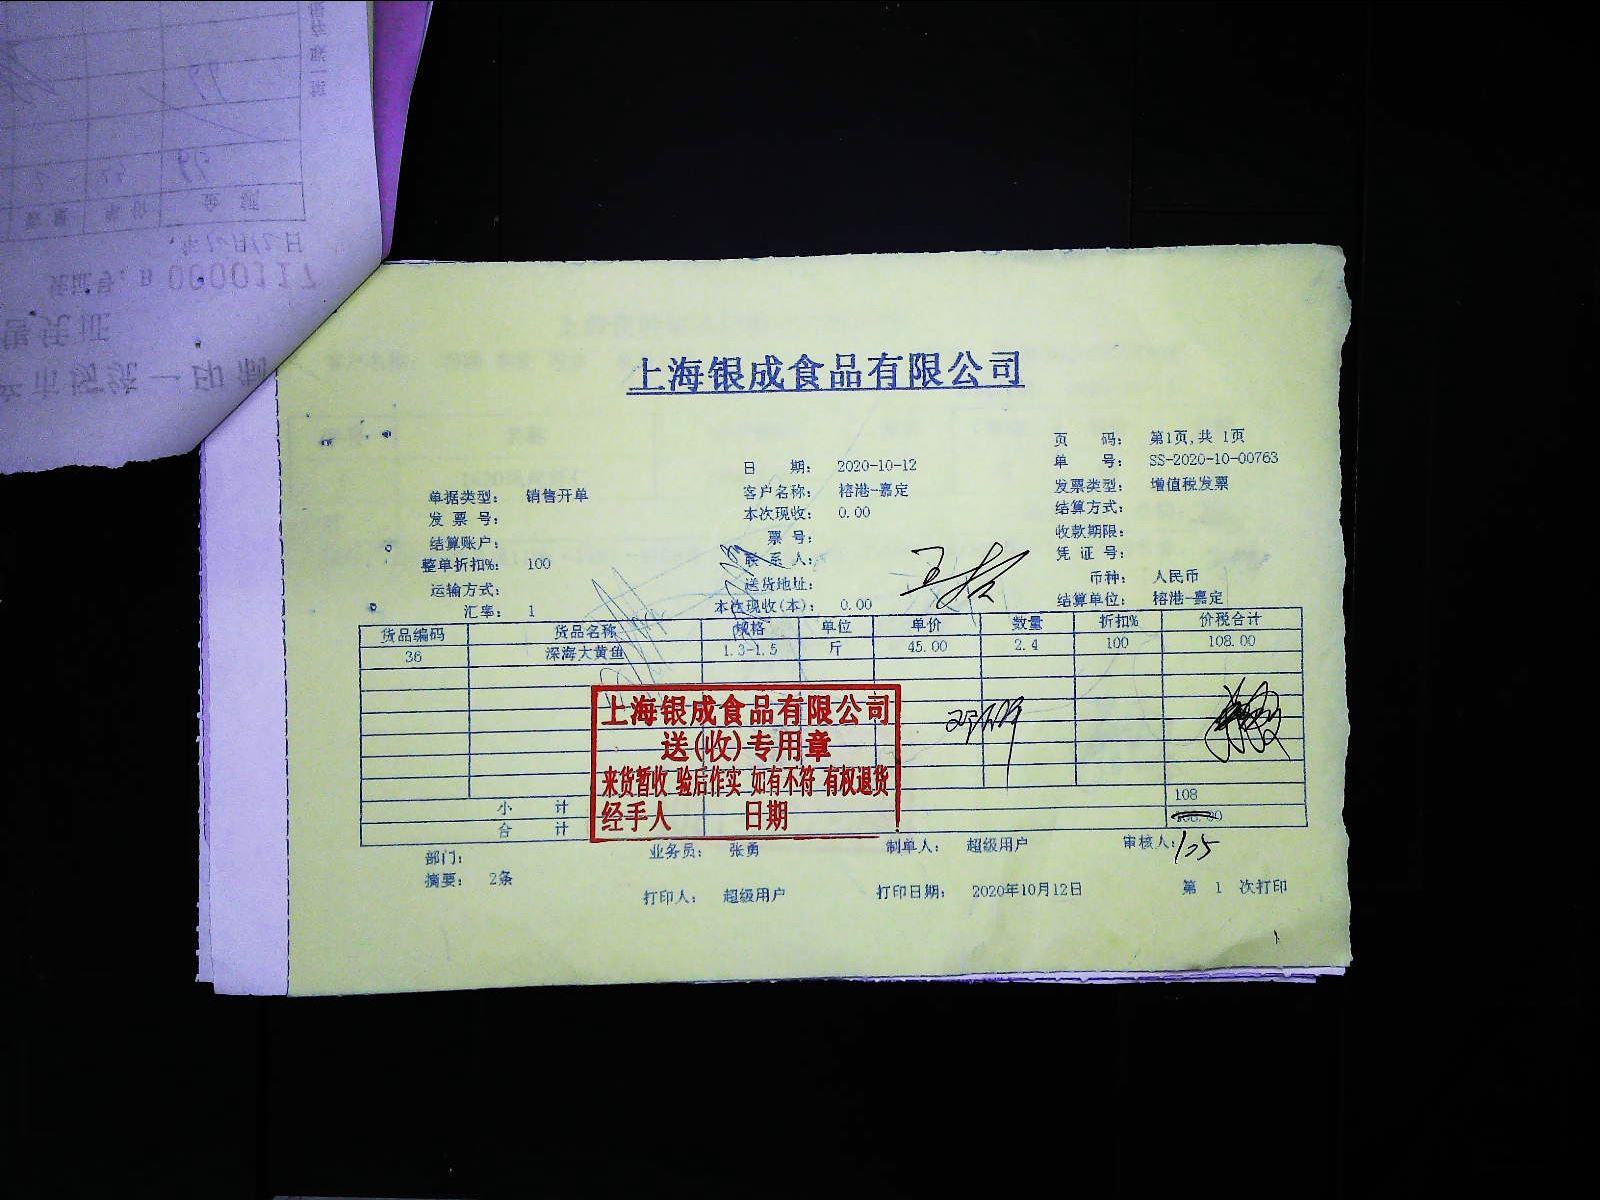 上海银成食品有限公司
页 码： 第1页,共 1页
日 期： 2020-10-12 单 号： SS-2020-10-00763
单据类型： 销售开单 客户名称： 榕港-嘉定 发票类型： 增值税发票
发 票 号： 本次现收： 0.00 结算方式：
结算账户： 票 号： 收款期限：
整单折扣%： 100 联 系 人： 凭 证 号：
运输方式： 送货地址： 币种： 人民币
汇率： 1 本次现收(本)： 0.00 结算单位： 榕港-嘉定
货品编码 货品名称 规格 单位 单价 数量 折扣% 价税合计
36 深海大黄鱼 1.3-1.5 斤 45.00 2.4 100 108.00
上海银成食品有限公司
送(收)专用章
来货暂收 验后作实 如有不符 有权退货
经手人 日期
小 计 108
合 计 108.00
部门： 业务员： 张勇 制单人： 超级用户 审核人： 105
摘要： 2条
打印人： 超级用户 打印日期： 2020年10月12日 第 1 次打印